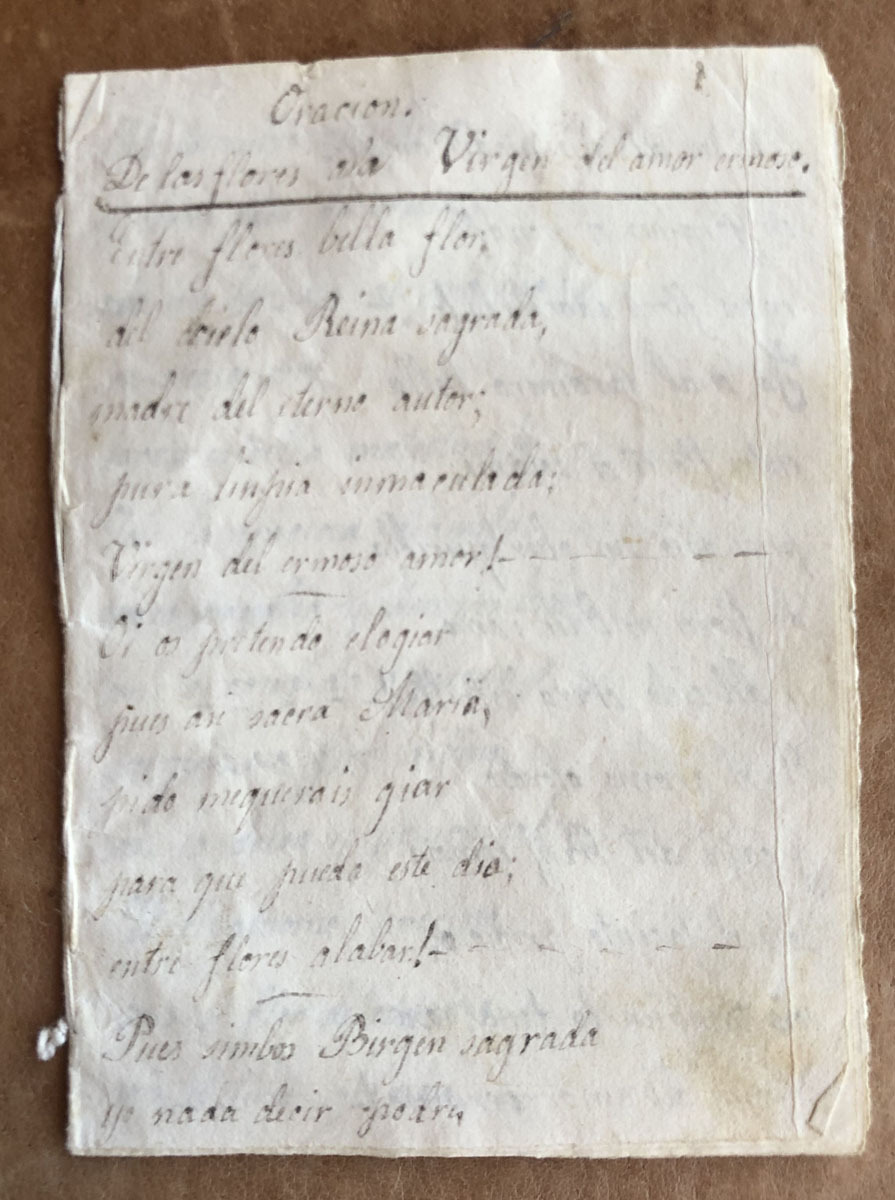 Oracion.
De las flores ala Virgen del amor ermoso.
Entre flores bella flor,
del cielo Reina sagrada,
madre del eterno autor;
pura linpia inmaculada;
Virgen del ermoso amor!
Oi os pretendo elogiar
pues asi sacra Maria,
pido mequerais giar
para que pueda este dia;
entre flores alabar!
Pues simbos Birgen sagrada
yo nada decir podre,